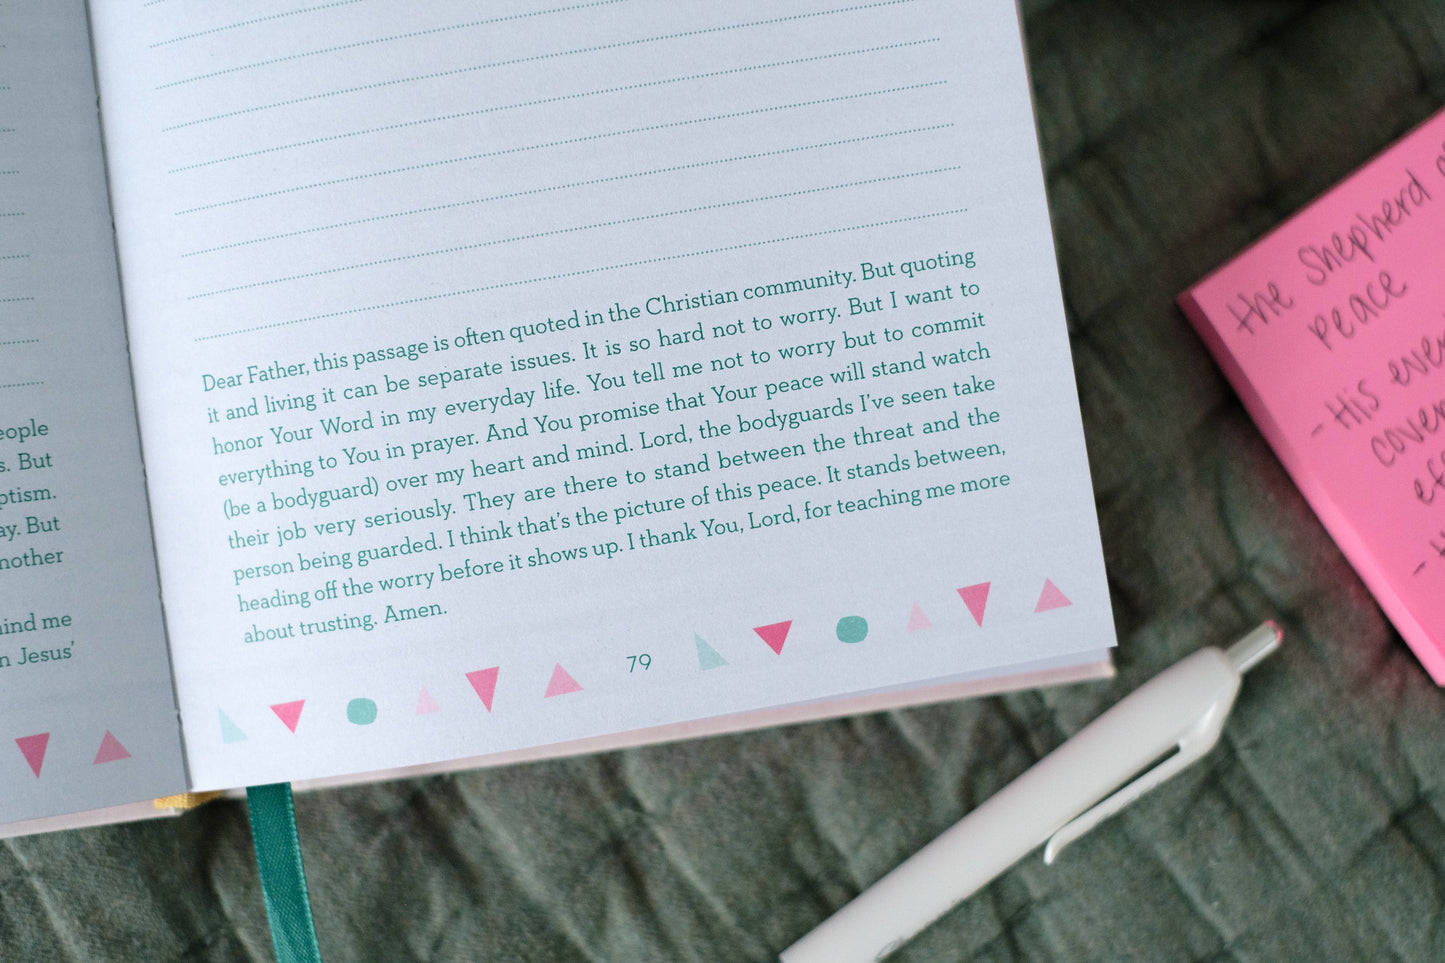 eople
s. But
ptism.
ay. But
nother
ind me
n Jesus'
Dear Father, this passage is often quoted in the Christian community. But quoting
it and living it can be separate issues. It is so hard not to worry. But I want to
honor Your Word in my everyday life. You tell me not to worry but to commit
everything to You in prayer. And You promise that Your peace will stand watch
(be a bodyguard) over my heart and mind. Lord, the bodyguards I've seen take
their job very seriously. They are there to stand between the threat and the
person being guarded. I think that's the picture of this peace. It stands between,
heading off the worry before it shows up. I thank You, Lord, for teaching me more
about trusting. Amen.
79
the Shepherd
peace
- His ever
cover